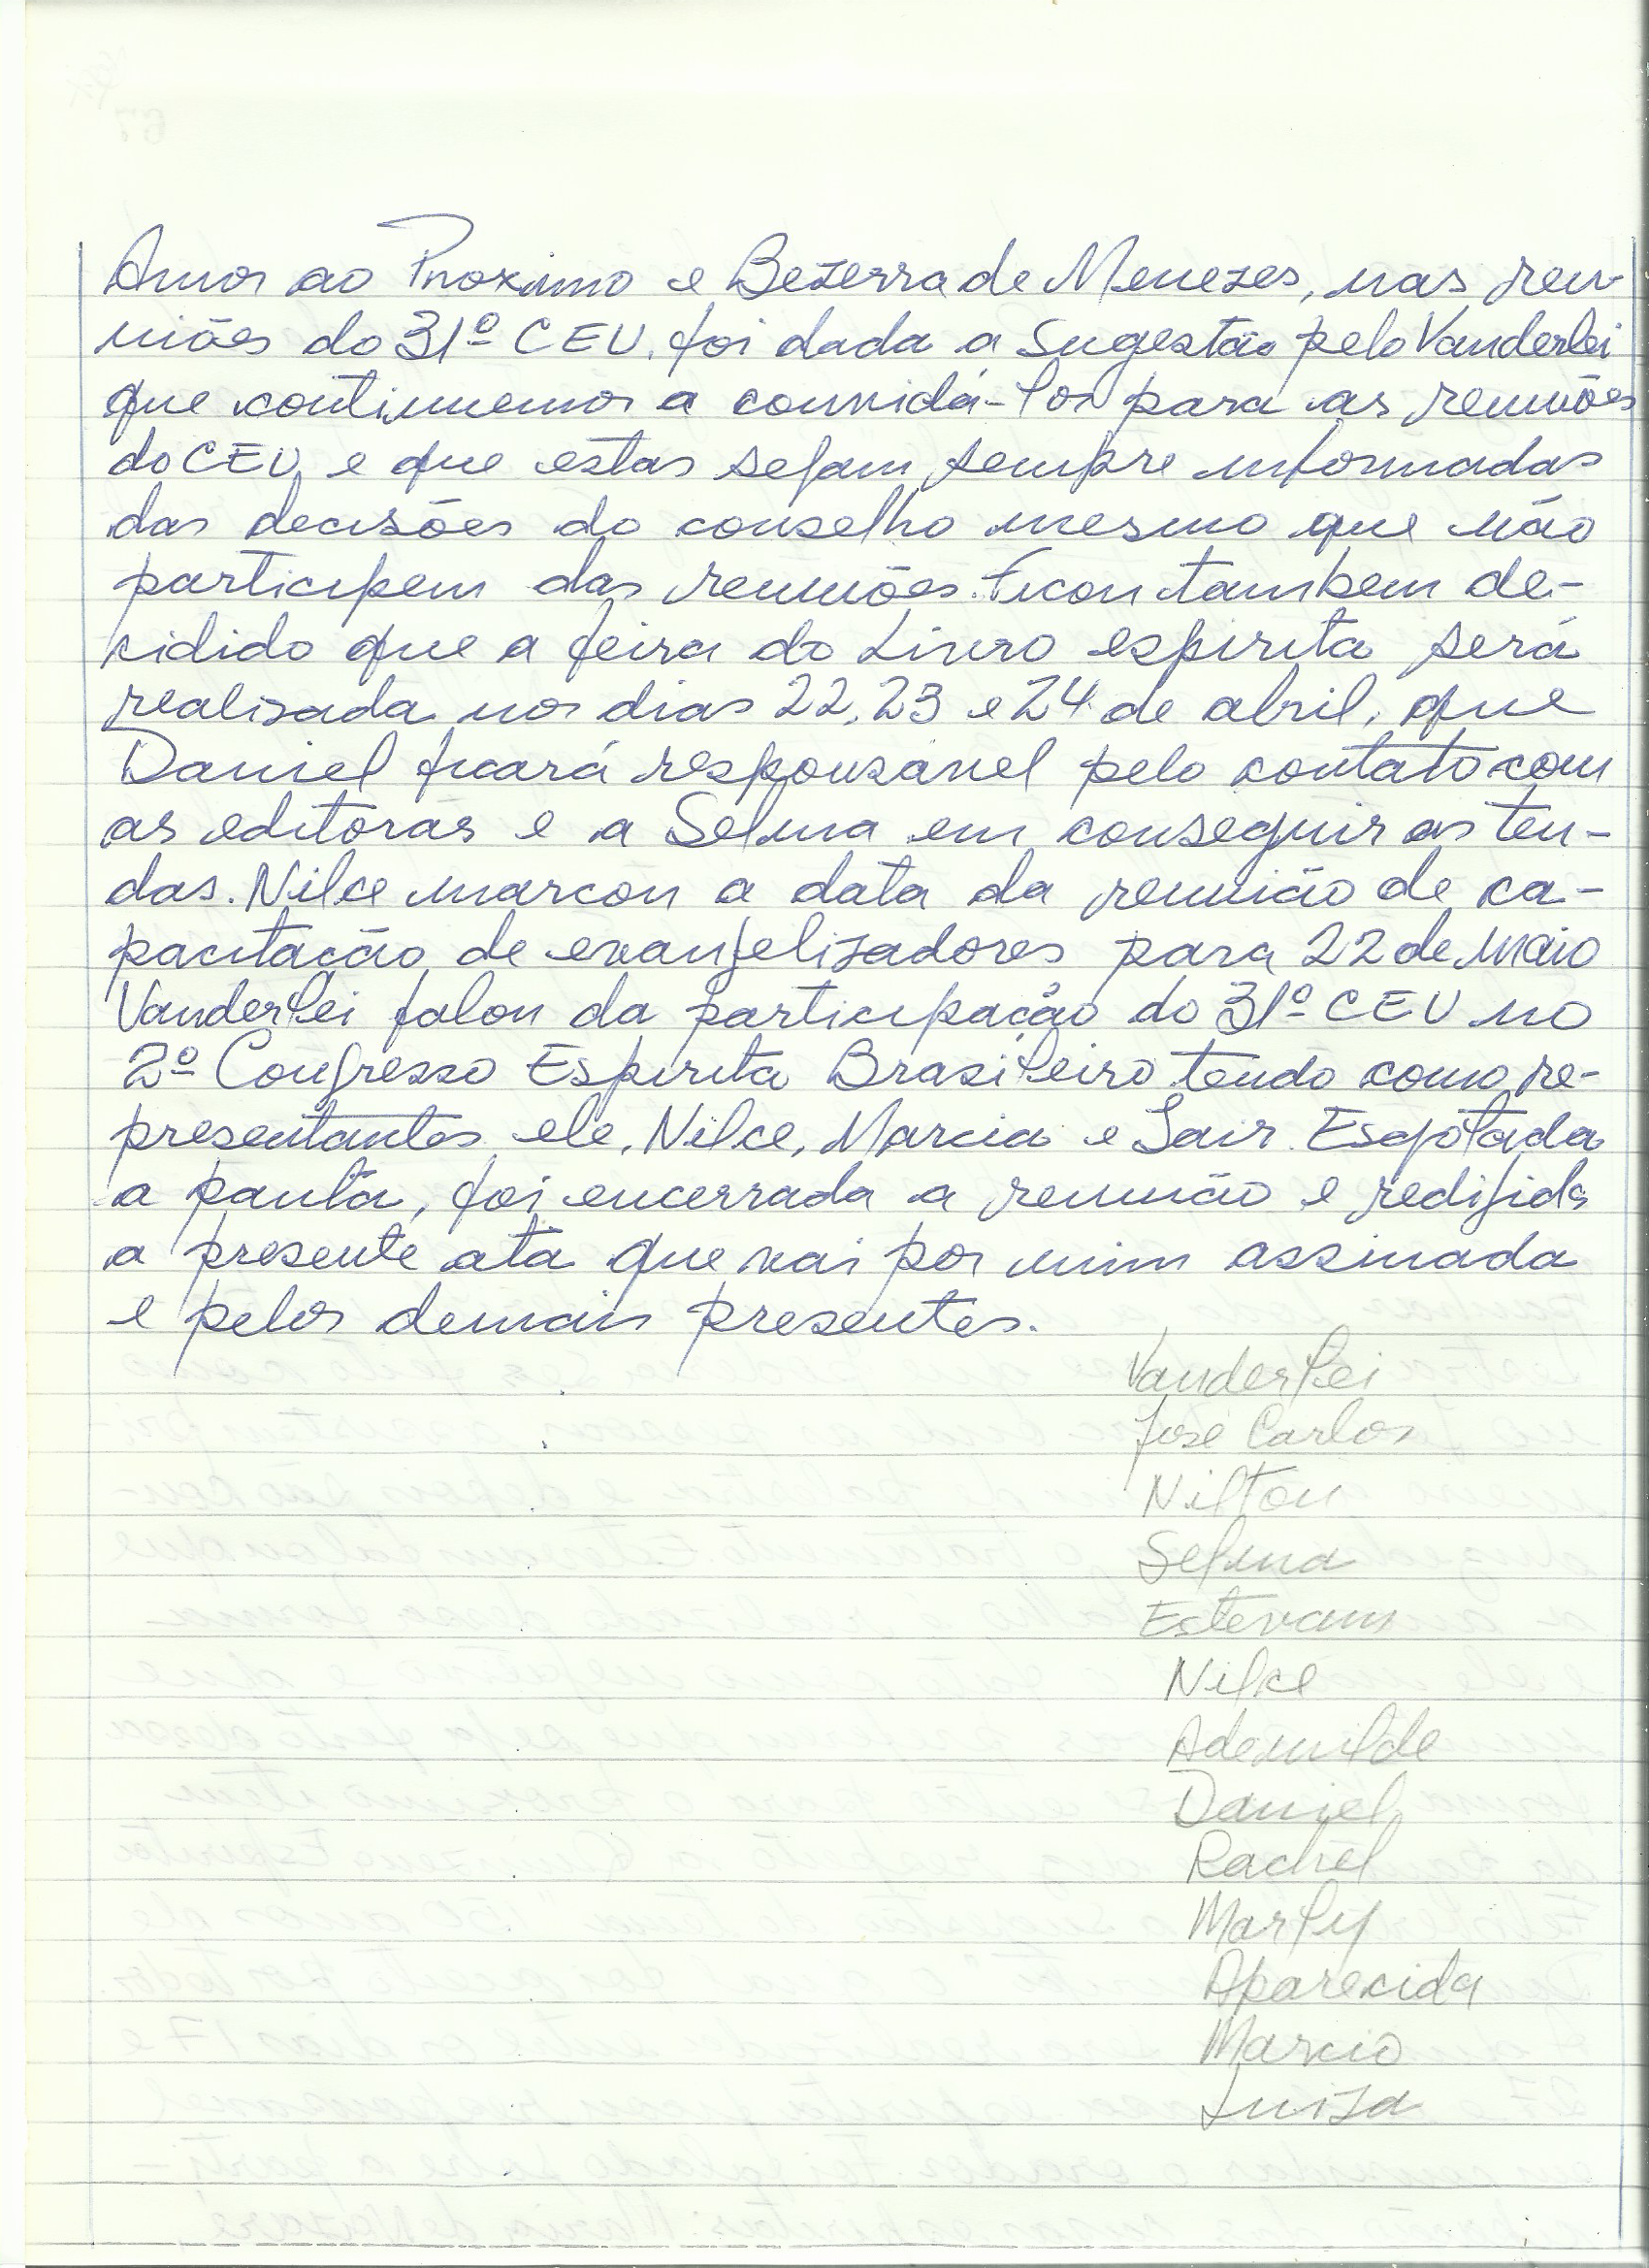 Amor ao Proximo e Bezerra de Menezes, nas reu-
niões do 31º CEU, foi dada a sugestão pelo Vanderlei
que continuemos a convidá-los para as reuniões
do CEU, e que estas sejam sempre informadas
das decisões do conselho mesmo que não
participem das reuniões. Ficou tambem de-
cidido que a feira do Livro espirita será
realisada nos dias 22, 23 e 24 de abril, que
Daniel ficará responsavel pelo contato com
as editoras e a Selma em conseguir as ten-
das. Nilce marcou a data da reunião de ca-
pacitação de evangelisadores para 22 de maio
Vanderlei falou da participação do 31º CEU no
2º Congresso Espirita Brasileiro tendo como re-
presentantes ele, Nilce, Marcia e Jair. Esgotada
a pauta, foi encerrada a reunião e redigida
a presente ata que vai por mim assinada
e pelos demais presentes.
Vanderlei
José Carlos
Nilton
Selma
Estevam
Nilce
Ademilde
Daniel
Rachel
Marly
Aparecida
Marcio
Luiza